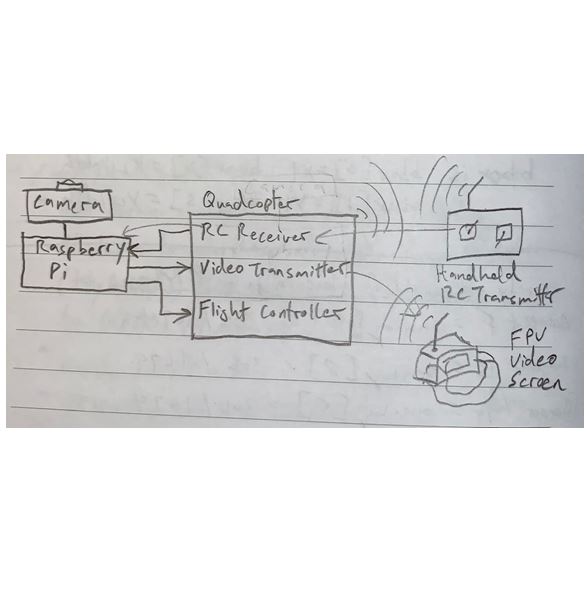 Camera
Raspberry
Pi
Quadcopter
RC Receiver
Video Transmitter
Flight Controller
Handheld
RC Transmitter
FPV
Video
Screen